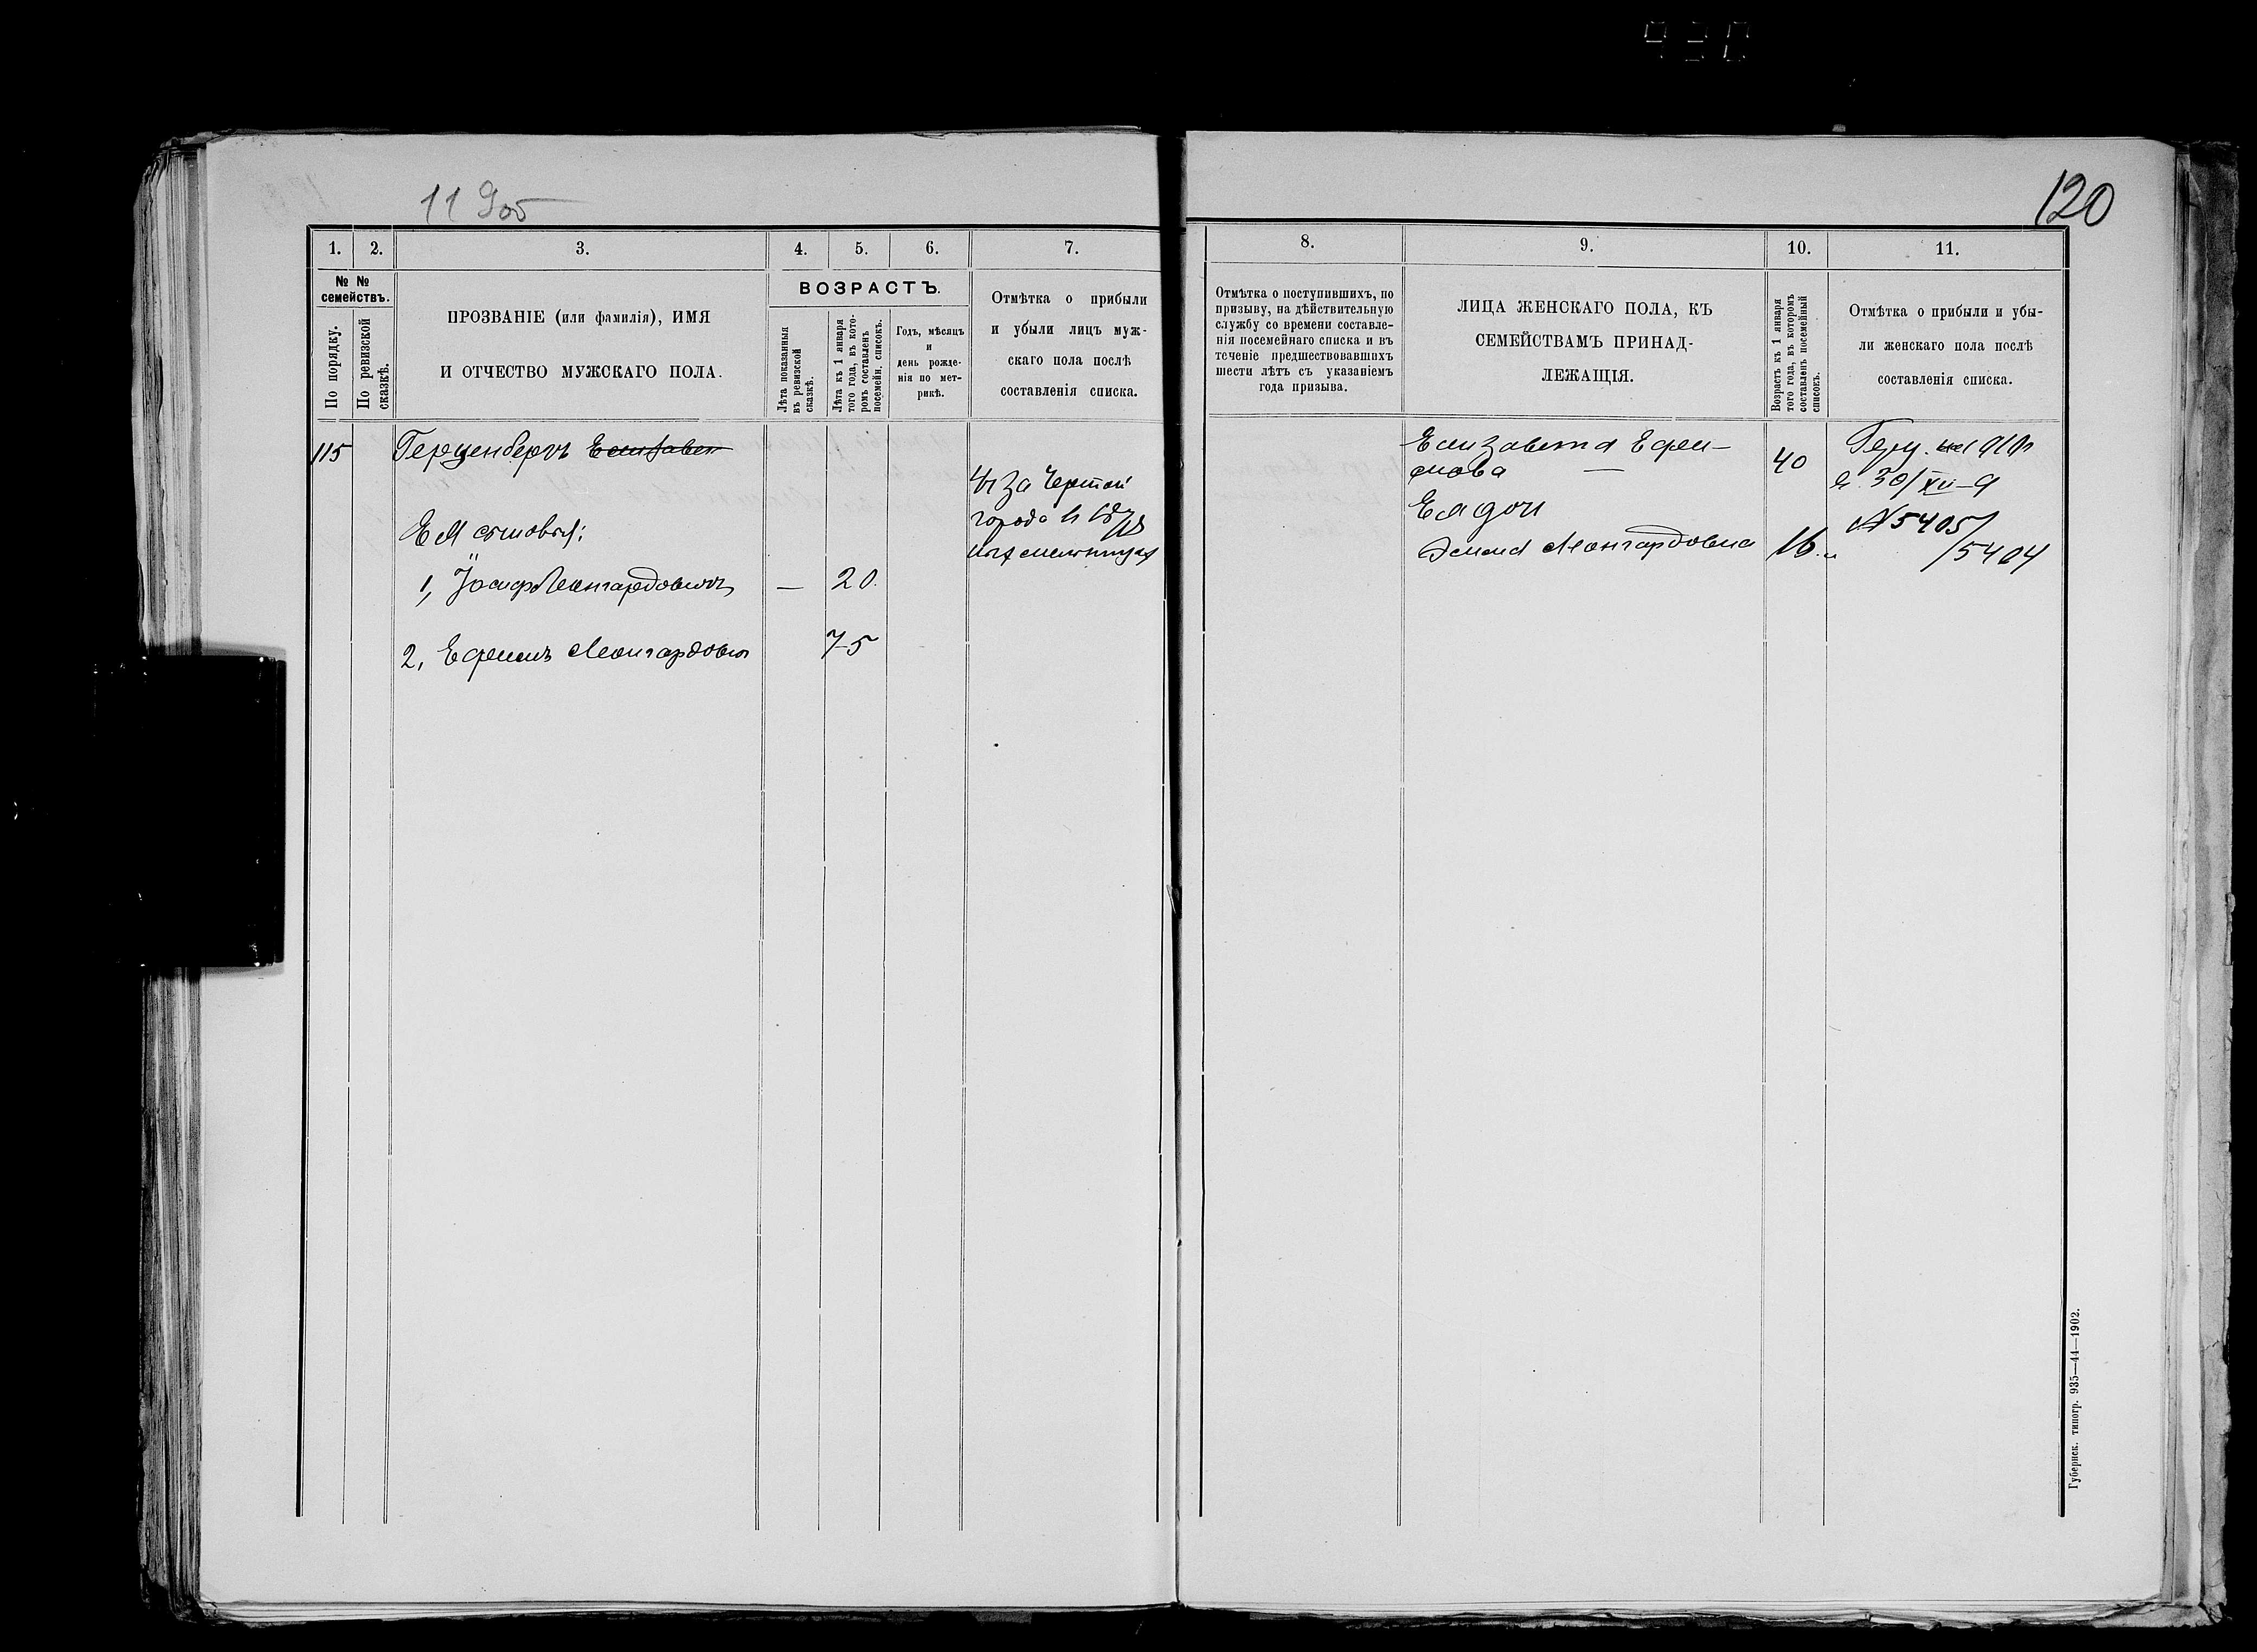 430
11 905
120
1. 2. 3. 4. 5. 6. 7.
№ №
семействъ.
По порядку.
По ревизской
сказкѣ.
ПРОЗВАНІЕ (или фамилія), ИМЯ
И ОТЧЕСТВО МУЖСКАГО ПОЛА.
ВОЗРАСТЪ.
Лѣта показанныя
въ ревизской
сказкѣ.
Лѣта къ 1 января
того года, въ кото-
ромъ составленъ
посемейн. списокъ.
Годъ, мѣсяцъ
и
день рожде-
нія по мет-
рикѣ.
Отмѣтка о прибыли
и убыли лицъ муж-
скаго пола послѣ
составленія списка.
115 Герценбергъ Елизавет
Чы за Чертой
города
Ея сыновья:
1, Іосифъ Леонгардовичъ — 20.
2, Ефимъ Леонгардович 7-5
8. 9. 10. 11.
Отмѣтка о поступившихъ, по
призыву, на дѣйствительную
службу со времени составле-
нія посемейнаго списка и въ
теченіе предшествовавшихъ
шести лѣтъ съ указаніемъ
года призыва.
ЛИЦА ЖЕНСКАГО ПОЛА, КЪ
СЕМЕЙСТВАМЪ ПРИНАД-
ЛЕЖАЩІЯ.
Возрастъ къ 1 января
того года, въ которомъ
составленъ посемейный
списокъ.
Отмѣтка о прибыли и убы-
ли женскаго пола послѣ
составленія списка.
Елизавета Ефи-
мова — 40
Ея доч
Эмма Леонгардовна 16.
30/XII-9
№ 5405/
/5404
Губернск. типогр. 935—44—1902.